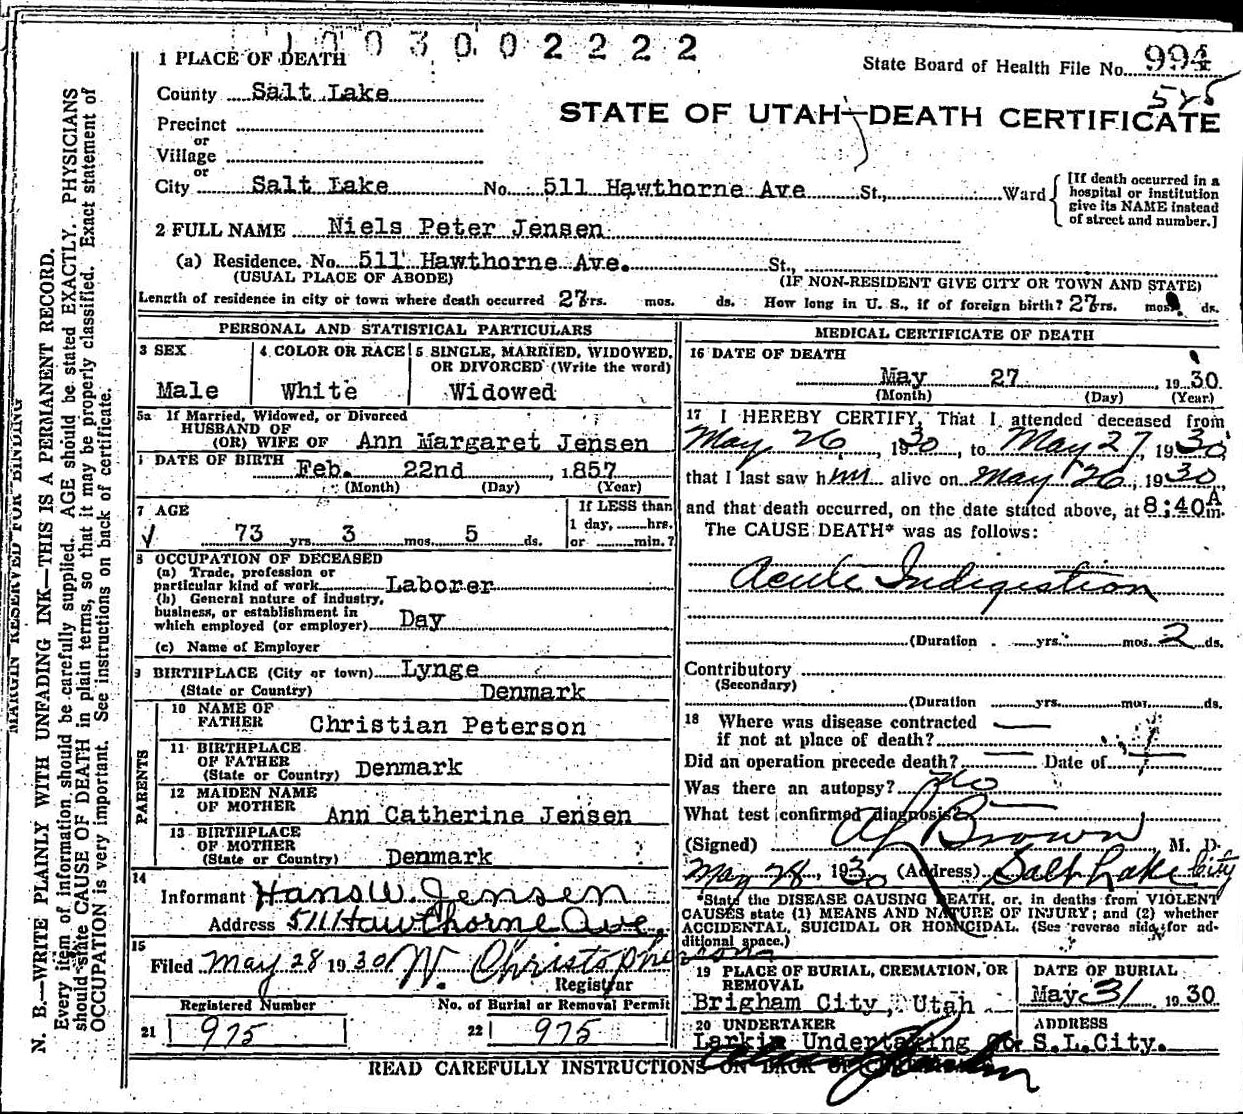 1003002222
1 PLACE OF DEATH
State Board of Health File No. 994
525
County Salt Lake
STATE OF UTAH—DEATH CERTIFICATE
Precinct
or
Village
or
City Salt Lake No. 511 Hawthorne Ave St., Ward
[If death occurred in a hospital or institution give its NAME instead of street and number.]
2 FULL NAME Niels Peter Jensen
(a) Residence. No. 511 Hawthorne Ave. St.,
(USUAL PLACE OF ABODE) (IF NON-RESIDENT GIVE CITY OR TOWN AND STATE)
Length of residence in city or town where death occurred 27 yrs. mos. ds. How long in U. S., if of foreign birth? 27 yrs. mos. ds.
PERSONAL AND STATISTICAL PARTICULARS
3 SEX 4 COLOR OR RACE 5 SINGLE, MARRIED, WIDOWED, OR DIVORCED (Write the word)
Male White Widowed
5a If Married, Widowed, or Divorced
HUSBAND OF
(OR) WIFE OF Ann Margaret Jensen
DATE OF BIRTH Feb. 22nd, 1857
(Month) (Day) (Year)
7 AGE If LESS than
1 day, hrs.
73 yrs. 3 mos. 5 ds. or min.?
8 OCCUPATION OF DECEASED
(a) Trade, profession or
particular kind of work Laborer
(b) General nature of industry,
business, or establishment in
which employed (or employer) Day
(c) Name of Employer
9 BIRTHPLACE (City or town) Lynge
(State or Country) Denmark
PARENTS
10 NAME OF
FATHER Christian Peterson
11 BIRTHPLACE
OF FATHER
(State or Country) Denmark
12 MAIDEN NAME
OF MOTHER Ann Catherine Jensen
13 BIRTHPLACE
OF MOTHER
(State or Country) Denmark
14
Informant Hans W. Jensen
Address 511 Hawthorne Ave.
15
Filed May 28 1930 W. Christopherson
Registrar
Registered Number No. of Burial or Removal Permit
21 975 22 975
MEDICAL CERTIFICATE OF DEATH
16 DATE OF DEATH
May 27 1930
(Month) (Day) (Year)
17 I HEREBY CERTIFY, That I attended deceased from
May 26, 1930, to May 27, 1930,
that I last saw him alive on May 26, 1930,
and that death occurred, on the date stated above, at 8:40 A m.
The CAUSE DEATH* was as follows:
Acute Indigestion
(Duration yrs. mos. 2 ds.
Contributory
(Secondary)
(Duration yrs. mos. ds.
18 Where was disease contracted
if not at place of death?
Did an operation precede death? Date of
Was there an autopsy? No
What test confirmed diagnosis?
(Signed) Brown M. D.
May 28, 1930 (Address) Salt Lake City
*State the DISEASE CAUSING DEATH, or, in deaths from VIOLENT
CAUSES state (1) MEANS AND NATURE OF INJURY; and (2) whether
ACCIDENTAL, SUICIDAL OR HOMICIDAL. (See reverse side for ad-
ditional space.)
19 PLACE OF BURIAL, CREMATION, OR REMOVAL DATE OF BURIAL
Brigham City, Utah May 31 1930
20 UNDERTAKER ADDRESS
Larkin Undertaking Co S.L.City.
READ CAREFULLY INSTRUCTIONS ON BACK OF
MARGIN RESERVED FOR BINDING
N. B.—WRITE PLAINLY WITH UNFADING INK—THIS IS A PERMANENT RECORD.
Every item of information should be carefully supplied. AGE should be stated EXACTLY. PHYSICIANS
should state CAUSE OF DEATH in plain terms, so that it may be properly classified. Exact statement of
OCCUPATION is very important. See instructions on back of certificate.